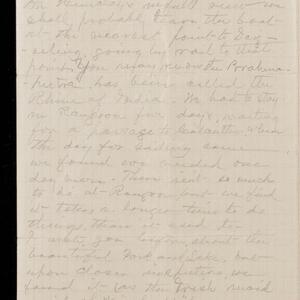 the Himalayas in full view we
shall probably leave the boat
at the nearest point to Dar-
jeeling, going by rail to that
point. You may know the Brahma-
putra has been called the
Rhine of India. We had to stay
in Rangoon five days, waiting
for a passage to Calcutta. When
the day for sailing came
we found we needed one
day more. There isn't so much
to do at Rangoon but we find
it takes a longer time to do
things than it used to.
I wrote you before about the
beautiful Park and Lake, but
upon closer inspection, we
found it as the Irish maid